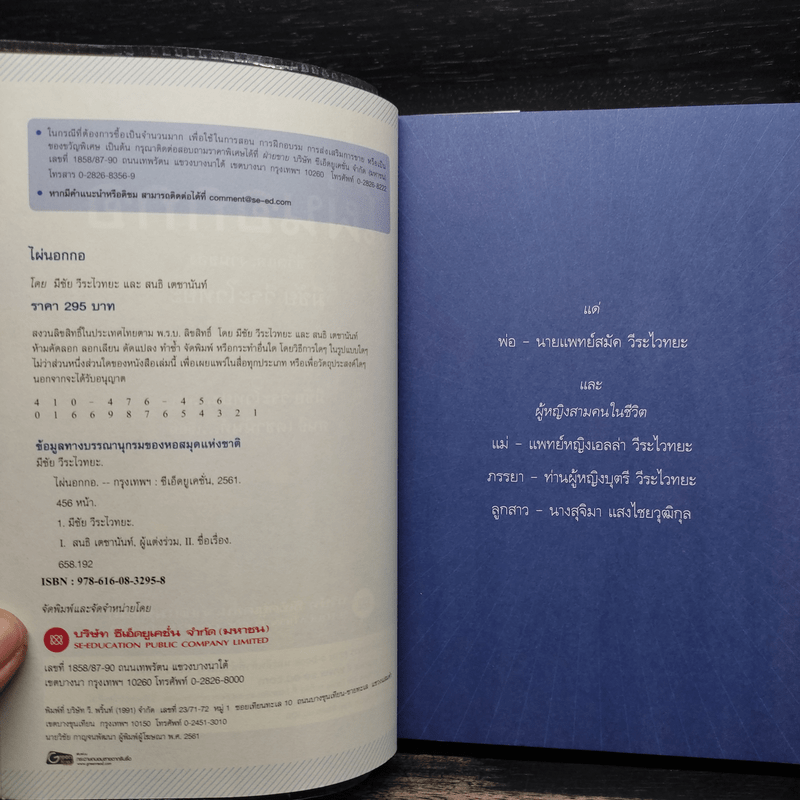 • ในกรณีที่ต้องการซื้อเป็นจำนวนมาก เพื่อใช้ในการสอน การฝึกอบรม การส่งเสริมการขาย หรือเป็น
ของขวัญพิเศษ เป็นต้น กรุณาติดต่อสอบถามราคาพิเศษได้ที่ ฝ่ายขาย บริษัท ซีเอ็ดยูเคชั่น จำกัด (มหาชน)
เลขที่ 1858/87-90 ถนนเทพรัตน แขวงบางนาใต้ เขตบางนา กรุงเทพฯ 10260 โทรศัพท์ 0-2826-8222
โทรสาร 0-2826-8356-9
• หากมีคำแนะนำหรือติชม สามารถติดต่อได้ที่ comment@se-ed.com
ไผ่นอกกอ
โดย มีชัย วีระไวทยะ และ สนธิ เตชานันท์
ราคา 295 บาท
สงวนลิขสิทธิ์ในประเทศไทยตาม พ.ร.บ. ลิขสิทธิ์ โดย มีชัย วีระไวทยะ และ สนธิ เตชานันท์
ห้ามคัดลอก ลอกเลียน ดัดแปลง ทำซ้ำ จัดพิมพ์ หรือกระทำอื่นใด โดยวิธีการใดๆ ในรูปแบบใดๆ
ไม่ว่าส่วนหนึ่งส่วนใดของหนังสือเล่มนี้ เพื่อเผยแพร่ในสื่อทุกประเภท หรือเพื่อวัตถุประสงค์ใดๆ
นอกจากจะได้รับอนุญาต
4 1 0 - 4 7 6 - 4 5 6
0 1 6 6 9 8 7 6 5 4 3 2 1
ข้อมูลทางบรรณานุกรมของหอสมุดแห่งชาติ
มีชัย วีระไวทยะ.
ไผ่นอกกอ. -- กรุงเทพฯ : ซีเอ็ดยูเคชั่น, 2561.
456 หน้า.
1. มีชัย วีระไวทยะ.
I. สนธิ เตชานันท์, ผู้แต่งร่วม, II. ชื่อเรื่อง.
658.192
ISBN : 978-616-08-3295-8
จัดพิมพ์และจัดจำหน่ายโดย
บริษัท ซีเอ็ดยูเคชั่น จำกัด (มหาชน)
SE-EDUCATION PUBLIC COMPANY LIMITED
เลขที่ 1858/87-90 ถนนเทพรัตน แขวงบางนาใต้
เขตบางนา กรุงเทพฯ 10260 โทรศัพท์ 0-2826-8000
พิมพ์ที่ บริษัท วี. พริ้นท์ (1991) จำกัด เลขที่ 23/71-72 หมู่ 1 ซอยเทียนทะเล 10 ถนนบางขุนเทียน-ชายทะเล
เขตบางขุนเทียน กรุงเทพฯ 10150 โทรศัพท์ 0-2451-3010
นายวิชัย กาญจนพัฒนา ผู้พิมพ์ผู้โฆษณา พ.ศ. 2561
แด่
พ่อ - นายแพทย์สมัค วีระไวทยะ
และ
ผู้หญิงสามคนในชีวิต
แม่ - แพทย์หญิงเอลล่า วีระไวทยะ
ภรรยา - ท่านผู้หญิงบุตรี วีระไวทยะ
ลูกสาว - นางสุจิมา แสงไชยวุฒิกุล